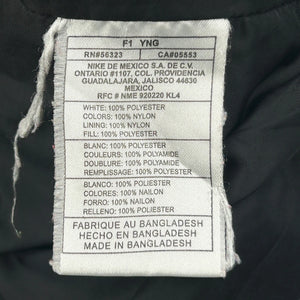 F1 YNG
RN#56323 CA#05553
NIKE DE MEXICO S.A. DE C.V.
ONTARIO #1107, COL. PROVIDENCIA
GUADALAJARA, JALISCO 44630
MEXICO
RFC # NME 920220 KL4
WHITE: 100% POLYESTER
COLORS: 100% NYLON
LINING: 100% NYLON
FILL: 100% POLYESTER
BLANC: 100% POLYESTER
COULEURS: 100% POLYAMIDE
DOUBLURE: 100% POLYAMIDE
REMPLISSAGE: 100% POLYESTER
BLANCO: 100% POLIESTER
COLORES: 100% NAILON
FORRO: 100% NAILON
RELLENO: 100% POLIESTER
FABRIQUE AU BANGLADESH
HECHO EN BANGLADESH
MADE IN BANGLADESH